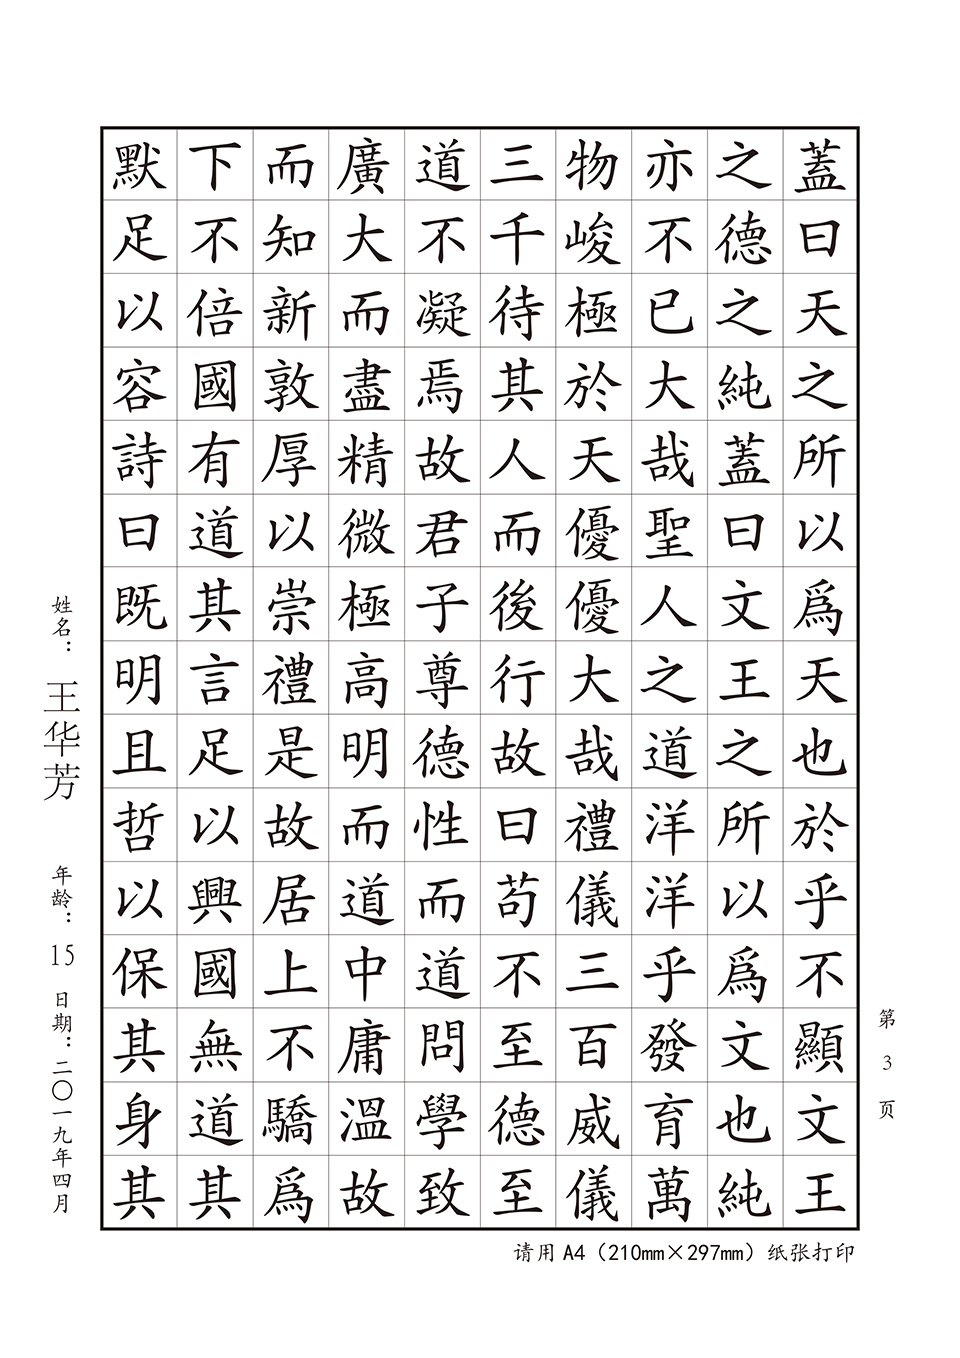 蓋曰天之所以爲天也於乎不顯文王
之德之純蓋曰文王之所以爲文也純
亦不已大哉聖人之道洋洋乎發育萬
物峻極於天優優大哉禮儀三百威儀
三千待其人而後行故曰苟不至德至
道不凝焉故君子尊德性而道問學致
廣大而盡精微極高明而道中庸溫故
而知新敦厚以崇禮是故居上不驕爲
下不倍國有道其言足以興國無道其
默足以容詩曰既明且哲以保其身其
姓名：王华芳 年龄：15 日期：二〇一九年四月
第3页
请用A4（210mm×297mm）纸张打印